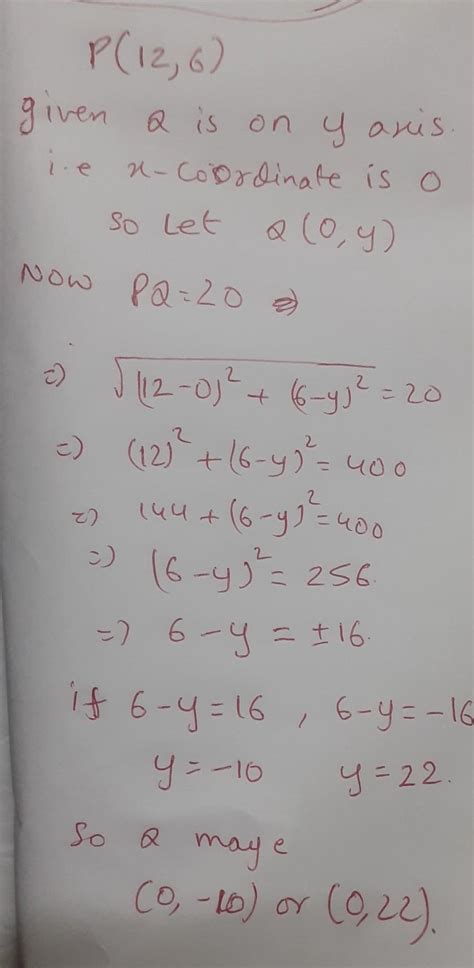 P(12,6)
given Q is on y axis.
i.e x-coordinate is 0
so Let Q(0,y)
Now PQ=20 ⇒
⇒) √(12-0)² + (6-y)² = 20
=) (12)² + (6-y)² = 400
=) 144 + (6-y)² = 400
=) (6-y)² = 256.
=) 6-y = ±16.
if 6-y=16 , 6-y=-16
y=-10 y=22.
So Q maye
(0,-10) or (0,22).